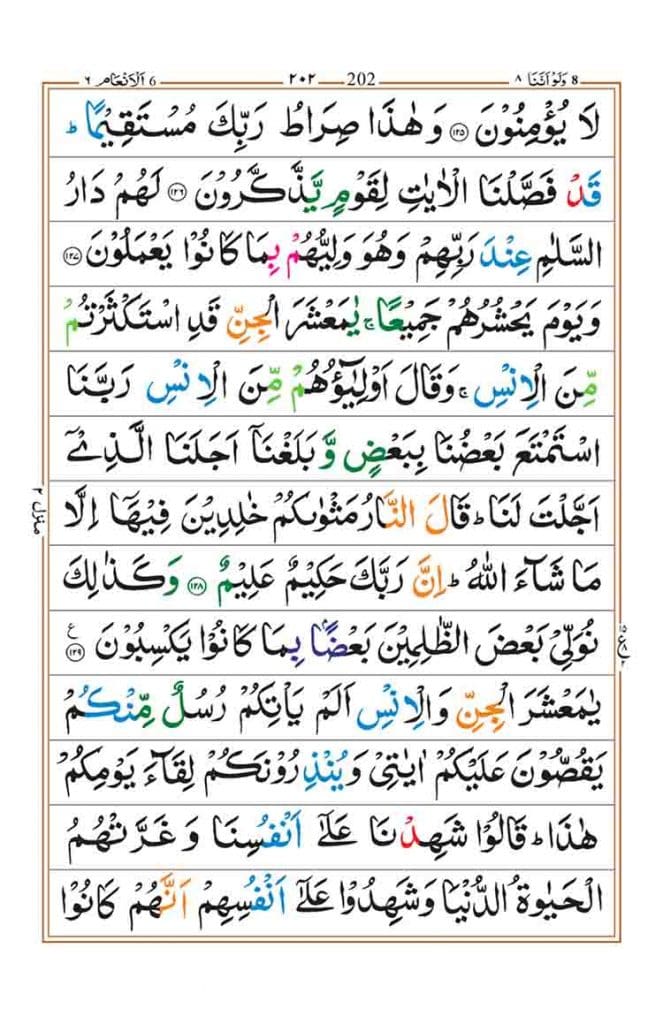 6 اَلْاَنْعَام ٦ ٢٠٢ 202 8 وَلَوْ اَنَّنَا ٨
لَا يُؤْمِنُوْنَ ۝١٢٥ وَهٰذَا صِرَاطُ رَبِّكَ مُسْتَقِيْمًا ؕ
قَدْ فَصَّلْنَا الْاٰيٰتِ لِقَوْمٍ يَّذَّكَّرُوْنَ ۝١٢٦ لَهُمْ دَارُ
السَّلٰمِ عِنْدَ رَبِّهِمْ وَهُوَ وَلِيُّهُمْ بِمَا كَانُوْا يَعْمَلُوْنَ ۝١٢٧
وَيَوْمَ يَحْشُرُهُمْ جَمِيْعًا ۚ يٰمَعْشَرَ الْجِنِّ قَدِ اسْتَكْثَرْتُمْ
مِّنَ الْاِنْسِ ۚ وَقَالَ اَوْلِيٰٓؤُهُمْ مِّنَ الْاِنْسِ رَبَّنَا
اسْتَمْتَعَ بَعْضُنَا بِبَعْضٍ وَّ بَلَغْنَاۤ اَجَلَنَا الَّذِىْۤ
اَجَّلْتَ لَنَا ؕ قَالَ النَّارُ مَثْوٰىكُمْ خٰلِدِيْنَ فِيْهَاۤ اِلَّا
مَا شَآءَ اللّٰهُ ؕ اِنَّ رَبَّكَ حَكِيْمٌ عَلِيْمٌ ۝١٢٨ وَكَذٰلِكَ
نُوَلِّىْ بَعْضَ الظّٰلِمِيْنَ بَعْضًۢا بِمَا كَانُوْا يَكْسِبُوْنَ ۝١٢٩ ع
يٰمَعْشَرَ الْجِنِّ وَالْاِنْسِ اَلَمْ يَاْتِكُمْ رُسُلٌ مِّنْكُمْ
يَقُصُّوْنَ عَلَيْكُمْ اٰيٰتِىْ وَيُنْذِرُوْنَكُمْ لِقَآءَ يَوْمِكُمْ
هٰذَا ؕ قَالُوْا شَهِدْنَا عَلٰٓى اَنْفُسِنَا وَغَرَّتْهُمُ
الْحَيٰوةُ الدُّنْيَا وَشَهِدُوْا عَلٰٓى اَنْفُسِهِمْ اَنَّهُمْ كَانُوْا
منزل ٢